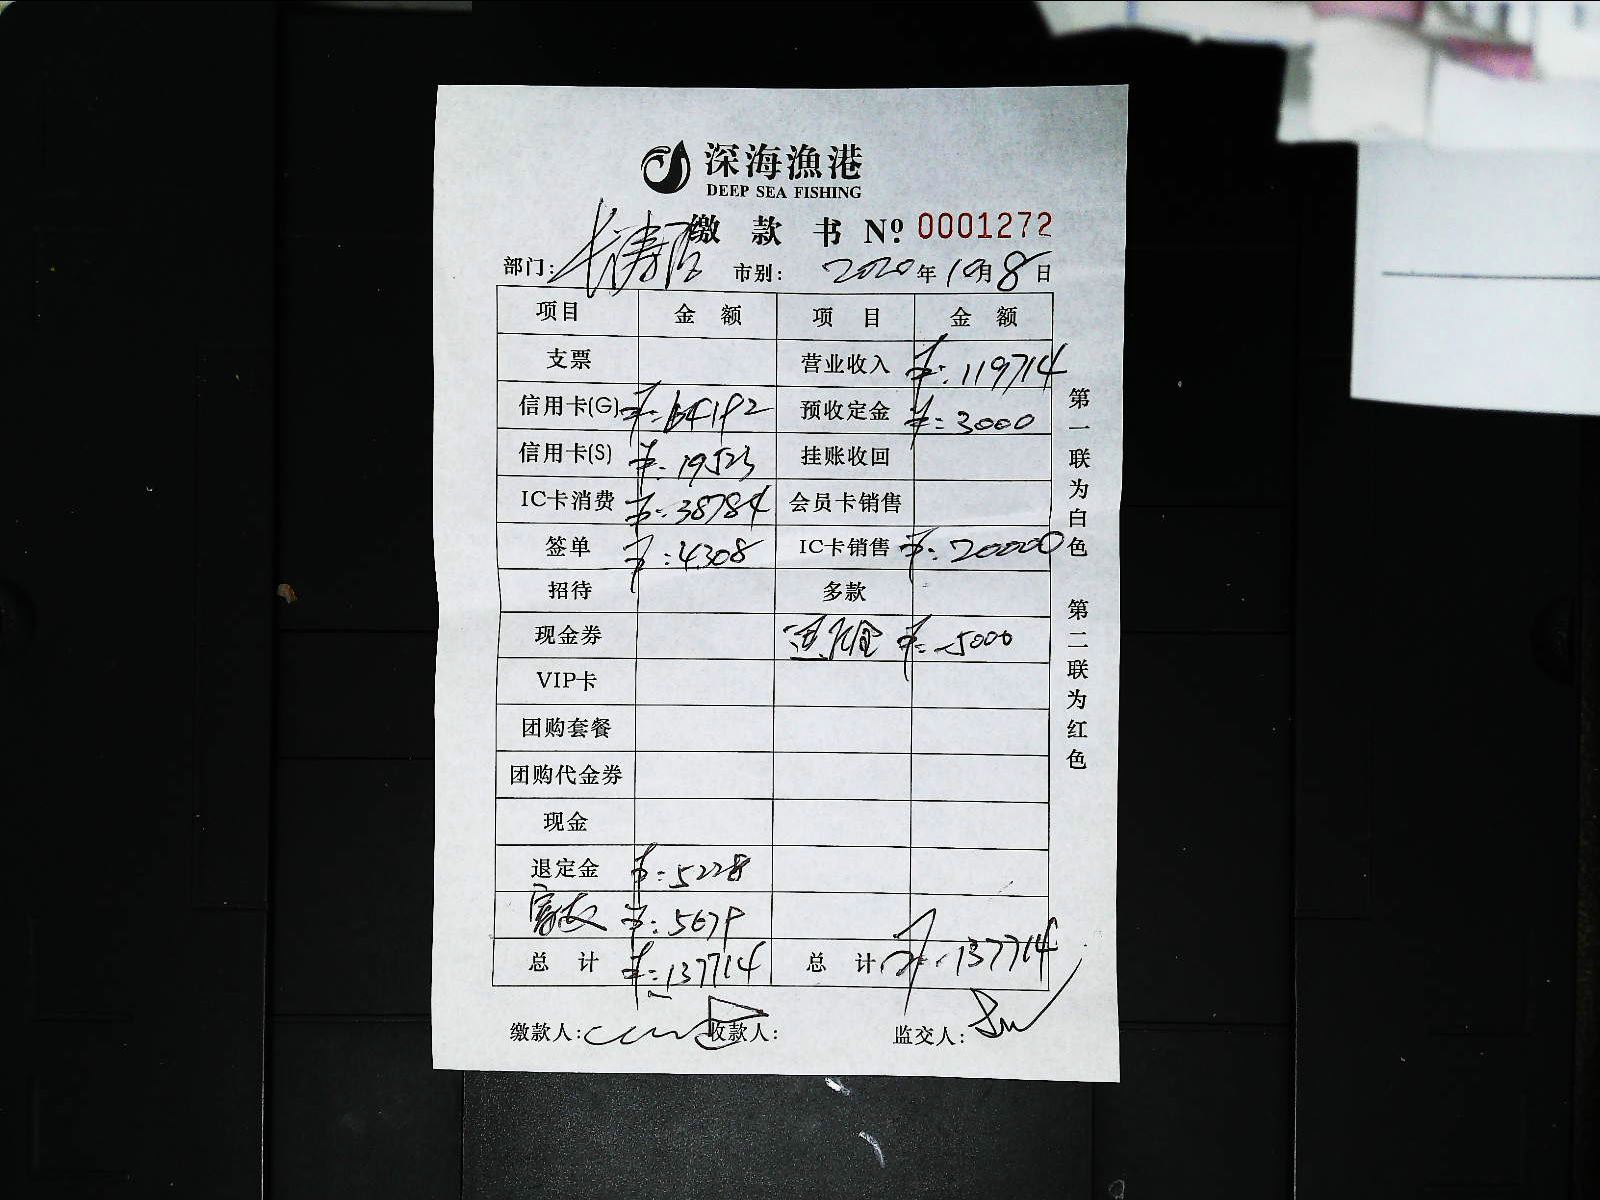 深海漁港
DEEP SEA FISHING
缴款书 Nº: 0001272
部门: 长寿店 市别: 2020年10月8日
项目 金额 项目 金额
支票 营业收入 ¥:119714
信用卡(G) ¥:64192 预收定金 ¥:3000
信用卡(S) ¥:19523 挂账收回
IC卡消费 ¥:38784 会员卡销售
签单 ¥:4308 IC卡销售 ¥:20000
招待 多款
现金券 ¥:-5000
VIP卡
团购套餐
团购代金券
现金
退定金 ¥:5228
富友 ¥:5679
总计 ¥:137714 总计 ¥:137714
缴款人: 收款人: 监交人:
第一联为白色 第二联为红色